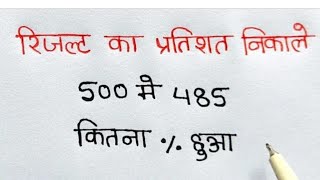 रिजल्ट का प्रतिशत निकाले
500 मे 485
कितना % हुआ